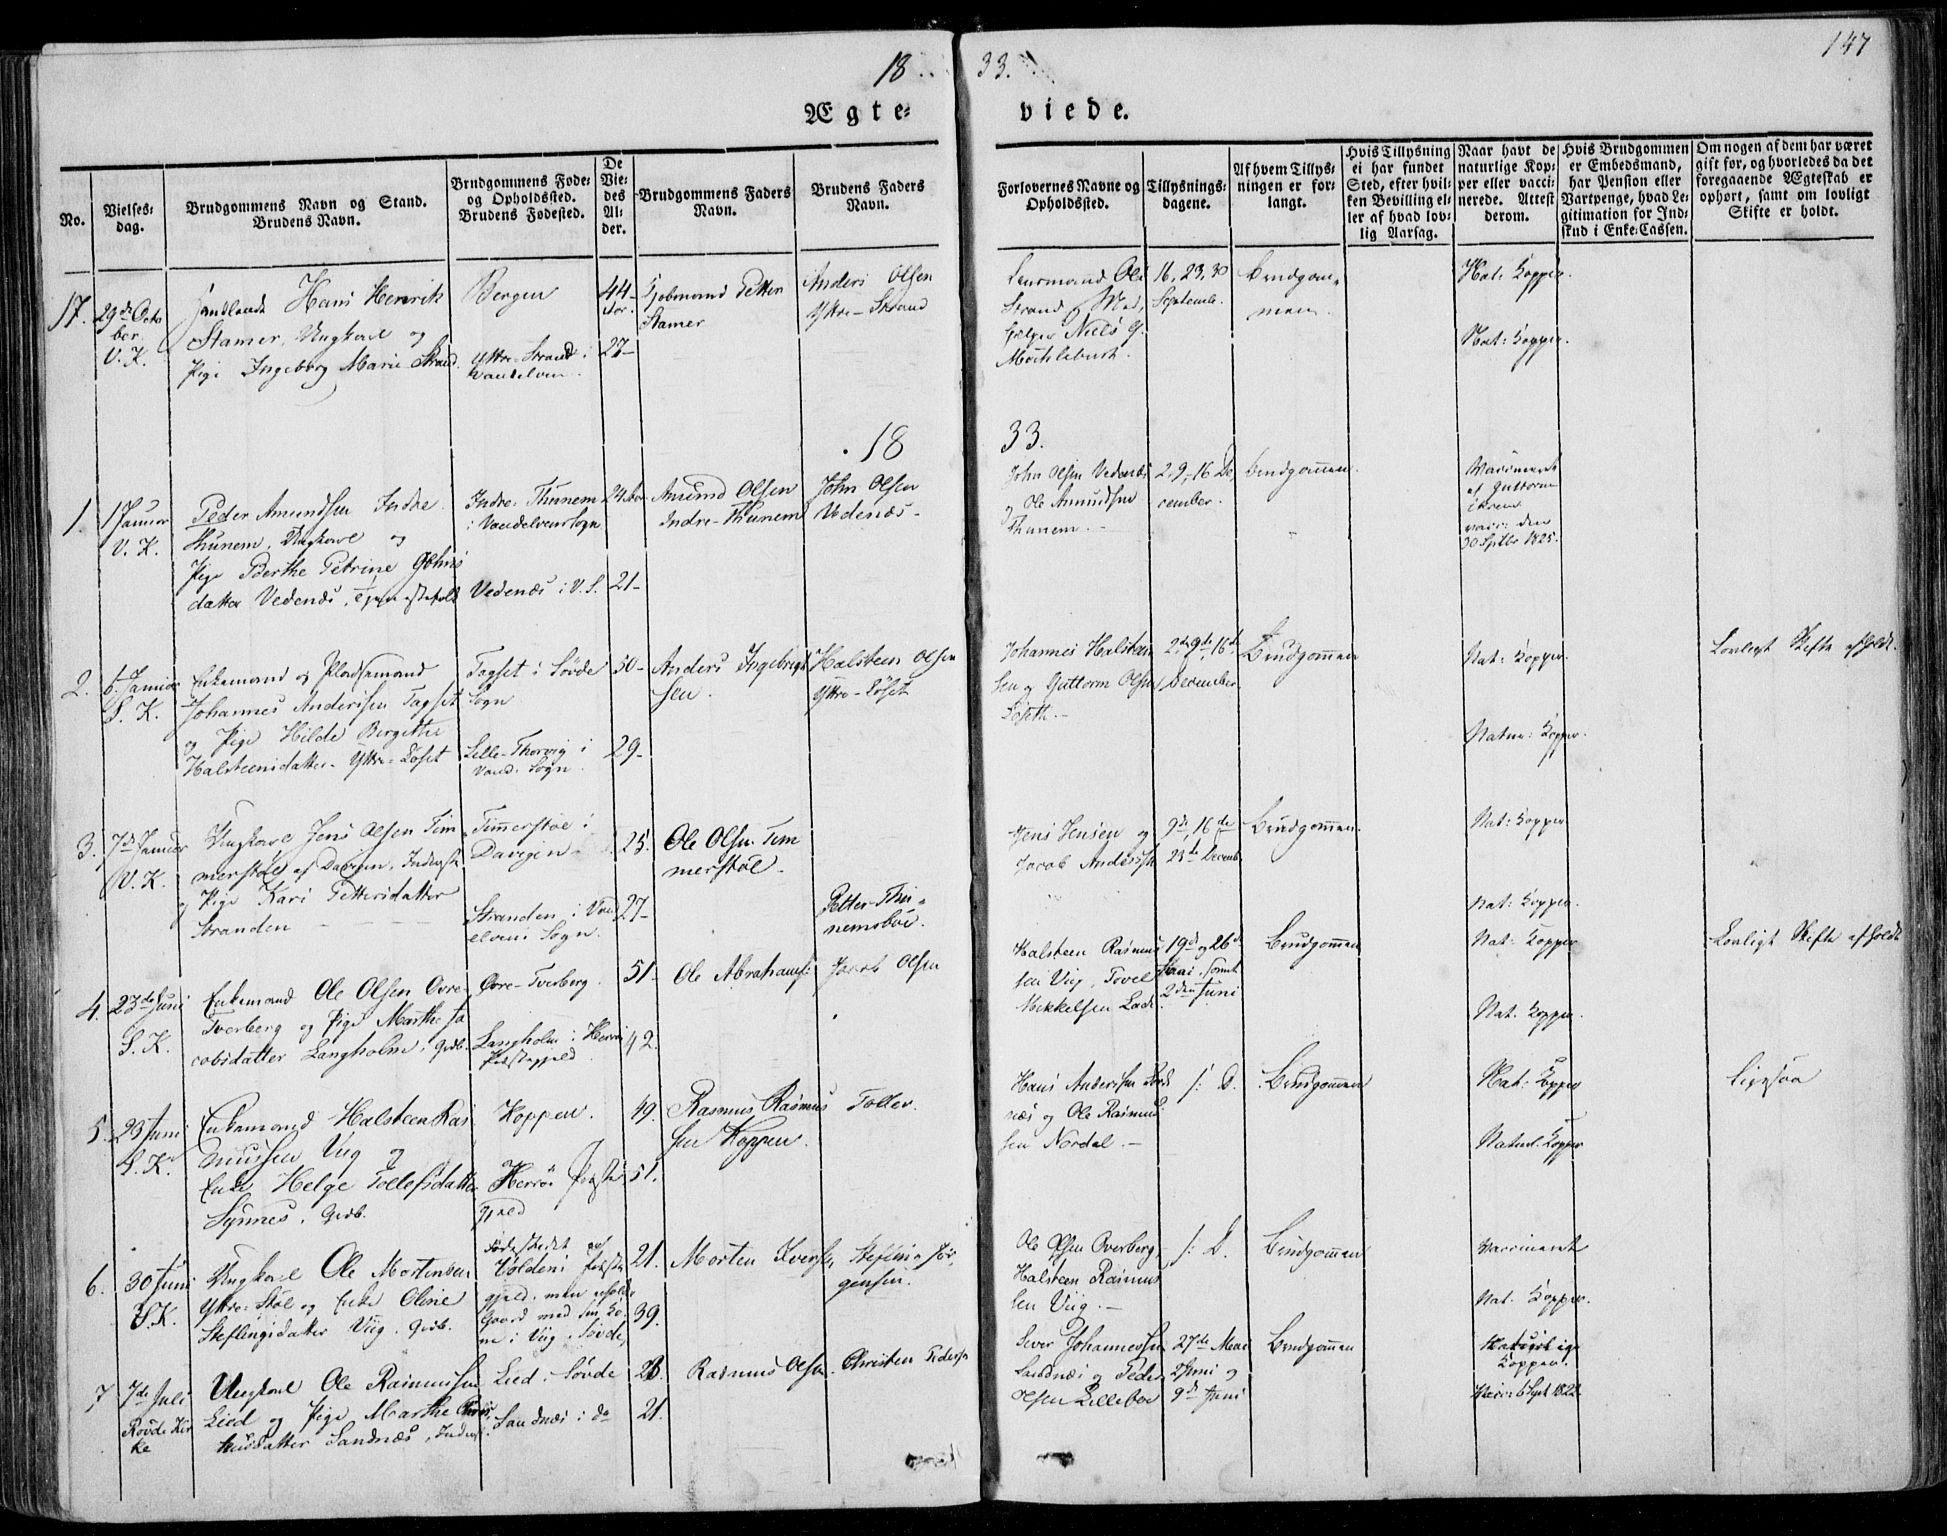 18
33.
147
Ægte-
viede.
No.
Vielses-
dag.
Brudgommens Navn og Stand.
Brudens Navn.
Brudgommens Føde-
og Opholdssted.
Brudens Fødested.
De
Vie-
des
Al-
der.
Brudgommens Faders
Navn.
Brudens Faders
Navn.
Forlovernes Navne og
Opholdssted.
Tillysnings-
dagene.
Af hvem Tillys-
ningen er for-
langt.
Hvis Tillysning
ei har fundet
Sted, efter hvil-
ken Bevilling el-
ler af hvad lov-
lig Aarsag.
Naar havt de
naturlige Kop-
per eller vacci-
nerede. Attest
derom.
Hvis Brudgommen
er Embedsmand,
har Pension eller
Vartpenge, hvad Le-
gitimation for Ind-
skud i Enke-Cassen.
Om nogen af dem har været
gift før, og hvorledes da det
foregaaende Ægteskab er
ophørt, samt om lovligt
Skifte er holdt.
17.
29de Octo
ber
V. K.
Hans Henrik
Stamer, Ungkarl og
Pige Ingeborg Marie Strand.
Bergen
Yttre-Strand i
Vandelven.
44
27-
Petter
Stamer
Anders Olsen
Yttre-Strand
Lensmand Ole
Strand,
Niels
16, 23, 30
Septemb.
Brudgom-
men.
Nat: Kopper.
Nat: Kopper.
18
33.
1.
1 Januar
V. K.
Peder Amundsen Indre
Thunem, Ungkarl og
Pige Berthe Petrine Johns
datter Vedenæs,
Indre-Thunem
i Vandelvens Sogn
Vedenæs i V. S.
24
21-
Amund Olsen
Indre-Thunem
John Olsen
Vedenæs-
John Olsen Vedenæs
og Ole Amundsen
Thunem.-
2, 9, 16 De
cember.
Brudgommen.
Vaccineret
af Guttorm
vacc: den
30 Septbr 1825.
2.
6. Januar
S. K.
Enkemand og Pladsemand
Johannes Andersen Tagset
og Pige Hilde Birgitte
Halsteensdatter Yttre-Løset
Tagset i Søvde
Sogn
Lille-Thorvig i
Vand. Sogn.
50-
29-
Anders Ingebrigt
sen.
Halsteen Olsen
Yttre-Løset
Johannes Halsteen
sen og Guttorm Olsen
Løseth.-
2de, 9de, 16de
December.
Brudgommen
Nat: Kopper.
Natur: Kopper.
Lovligt Skifte afholdt.
3.
7de Januar
V. K.
Ungkarl Jens Olsen Tim
merstøl af Davigen,
og Pige Kari Pettersdatter
Stranden
Timmerstøl i
Davigen-
Stranden i Vand
elvens Sogn.
25.
27-
Ole Olsen Tim
merstøl-
Petter Thu-
nemsbøe.
Jens Jensen og
Jacob Andersen
9de, 16de
23de Decemb.
Brudgommen.
Nat: Kopper
Nat: Kopper.
4.
23de Juni
S. K.
Enkemand Ole Olsen Ovre-
Tverberg og Pige Marthe Ja
cobsdatter Langholm,
Øvre-Tverberg.
Langholm i Herrø
Præstegjeld.
51-
42.
Ole Abrahams:
Jacob Olsen
Halsteen Rasmus
sen Viig, Tovel
Mekkelsen Lade.
19de og 26de
Mai, samt
2den Juni
Brudgommen
Nat: Kopper
Nat. Kopper.
Lovligt Skifte afholdt
5.
23 Juni
S. K.
Enkemand Halsteen Ras
mussen Viig og
Enke Helge Tollefsdatter
Synnes,
Koppen.
Herrøe Præste
gjeld
49.
51.
Rasmus Rasmus
sen Koppen.
Tollev.
Hans Andersen
næs og Ole Rasmus
sen Nordal.-
/: D.
Brudgommen
Nat: Kopper
Naturl. Kopper
Ligesaa
6.
30 Juni
S. K.
Ungkarl Ole Mortensen
Yttre-Støl og Enke Oline
Steflingsdatter Viig,
Fødestedet
Voldens Præste
gjeld, men
Gaard med sin Ko
ne i Viig, Søvde,
21.
39.
Morten Iversen
Steffling Jør
gensen.
Ole Olsen Overberg
Halsteen Rasmus
sen Viig.-
/: D.
Brudgommen
Vaccineret
Nat. Kopper.
7
7de Juli
Røvde Kir
ke
Ungkarl Ole Rasmussen
Lied og Pige Marthe
datter Sandnæs,
Lied i Søvde
Sandnæs i do
28
21.
Rasmus Olsen.
Christen Peders
Sever Johannessen
Sandnæs og Peder
Olsen Lillebøe
27de Mai
2 Juni og
9de Juni
Brudgommen
Naturlige
Kopper.
Vacc: 6 Sept 1822.